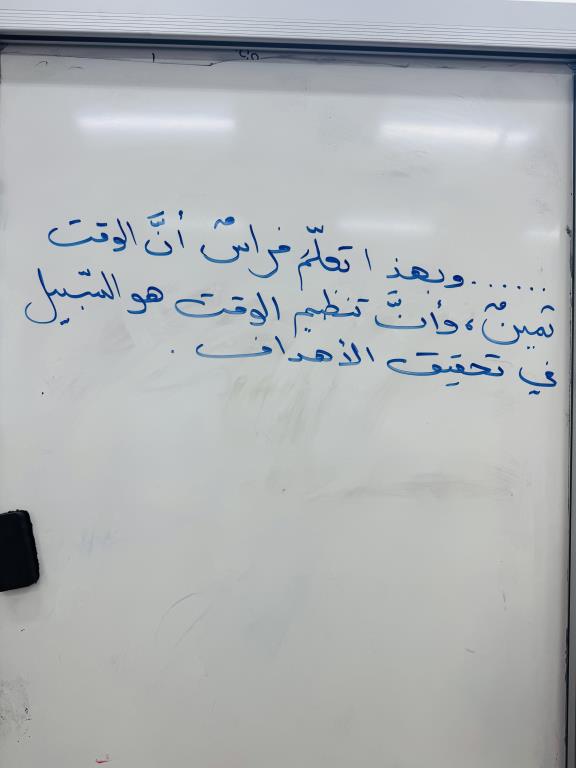 ......وبهذا تعلَّمَ فراسٌ أنَّ الوقت
ثمينٌ، وأنَّ تنظيم الوقت هو السّبيل
في تحقيق الأهداف .